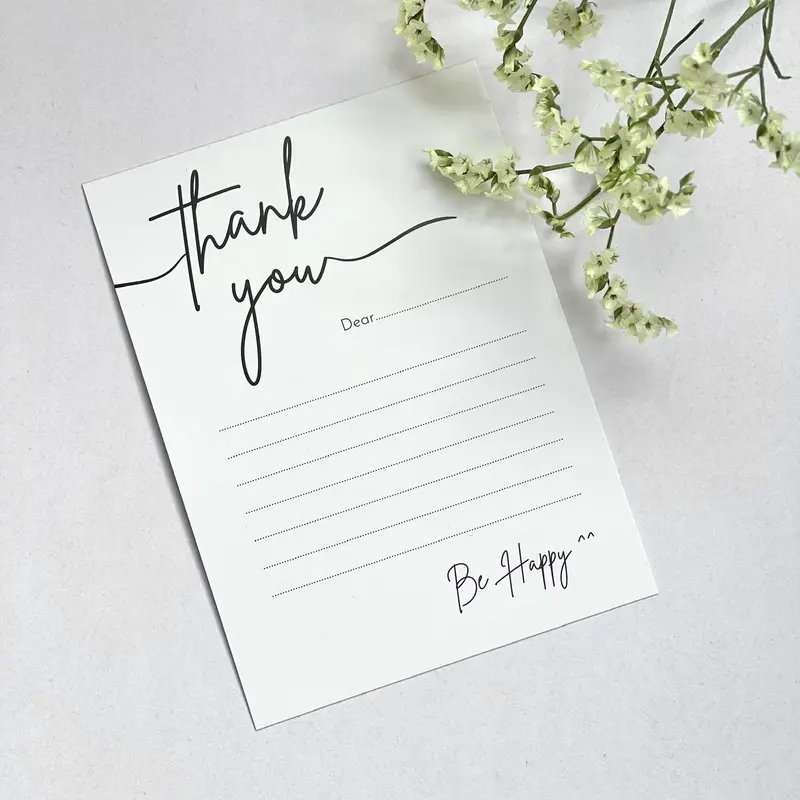 thank
you
Dear....................
Be Happy ^^